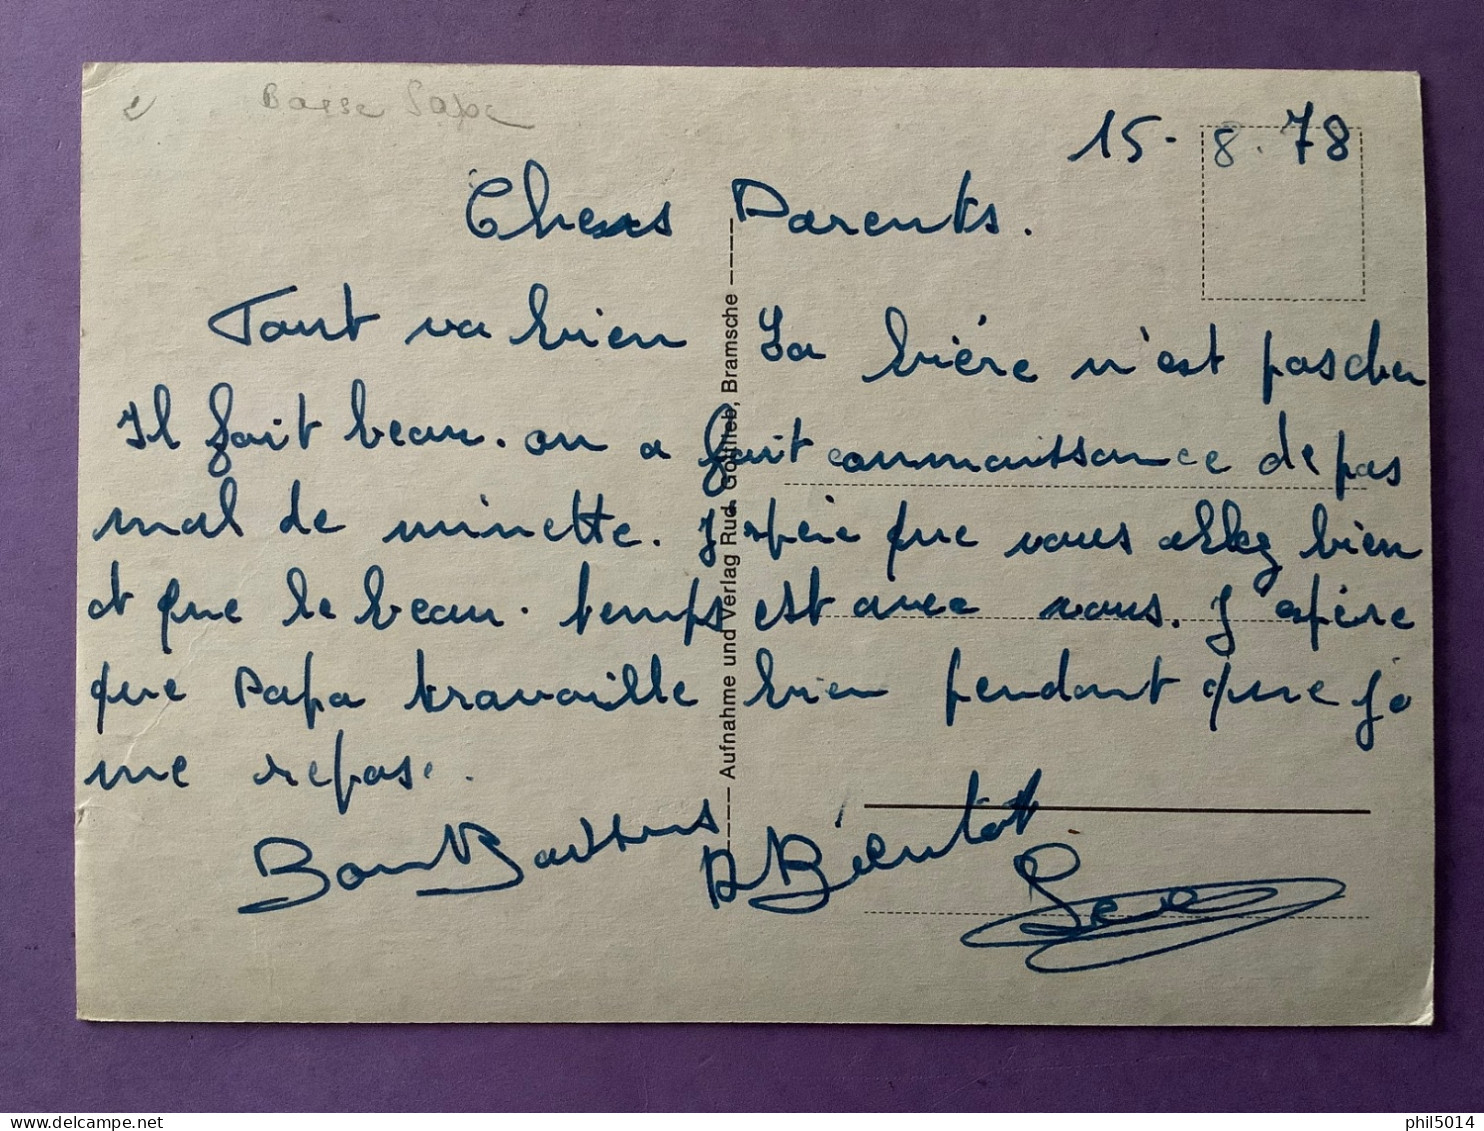 Basse Saxe
15-8.78
Chers Parents.
Tout va bien La bière n'est pas cher
Il fait beau. on a fait connaissance de pas
mal de minette. J'espère que vous allez bien
et que le beau. temps est avec vous. J'espère
que Papa travaille bien pendant que je
me repose.
Bont Baisers A Bientot
Aufnahme und Verlag Rud. Gottlieb, Bramsche
phil5014